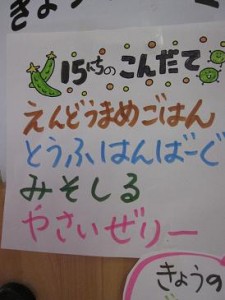 きょう
15にちの こんだて
えんどうまめごはん
とうふはんばーぐ
みそしる
やさいぜりー
きょうの